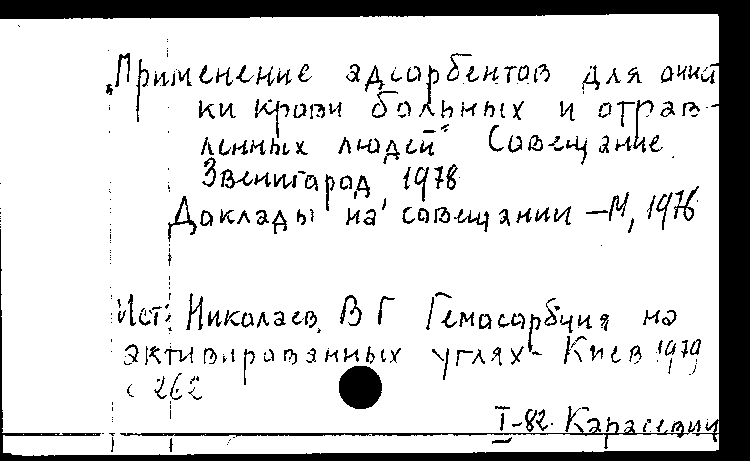 „Применение адсорбентов для очист
ки крови больных и отрав-
ленных людей" Совещание
Звенигород, 1978
Доклады на совещании – М, 1976
Ист: Николаев, В Г Гемосорбция на
активированных углях - Киев 1979
с 262
I-82. Карасевич